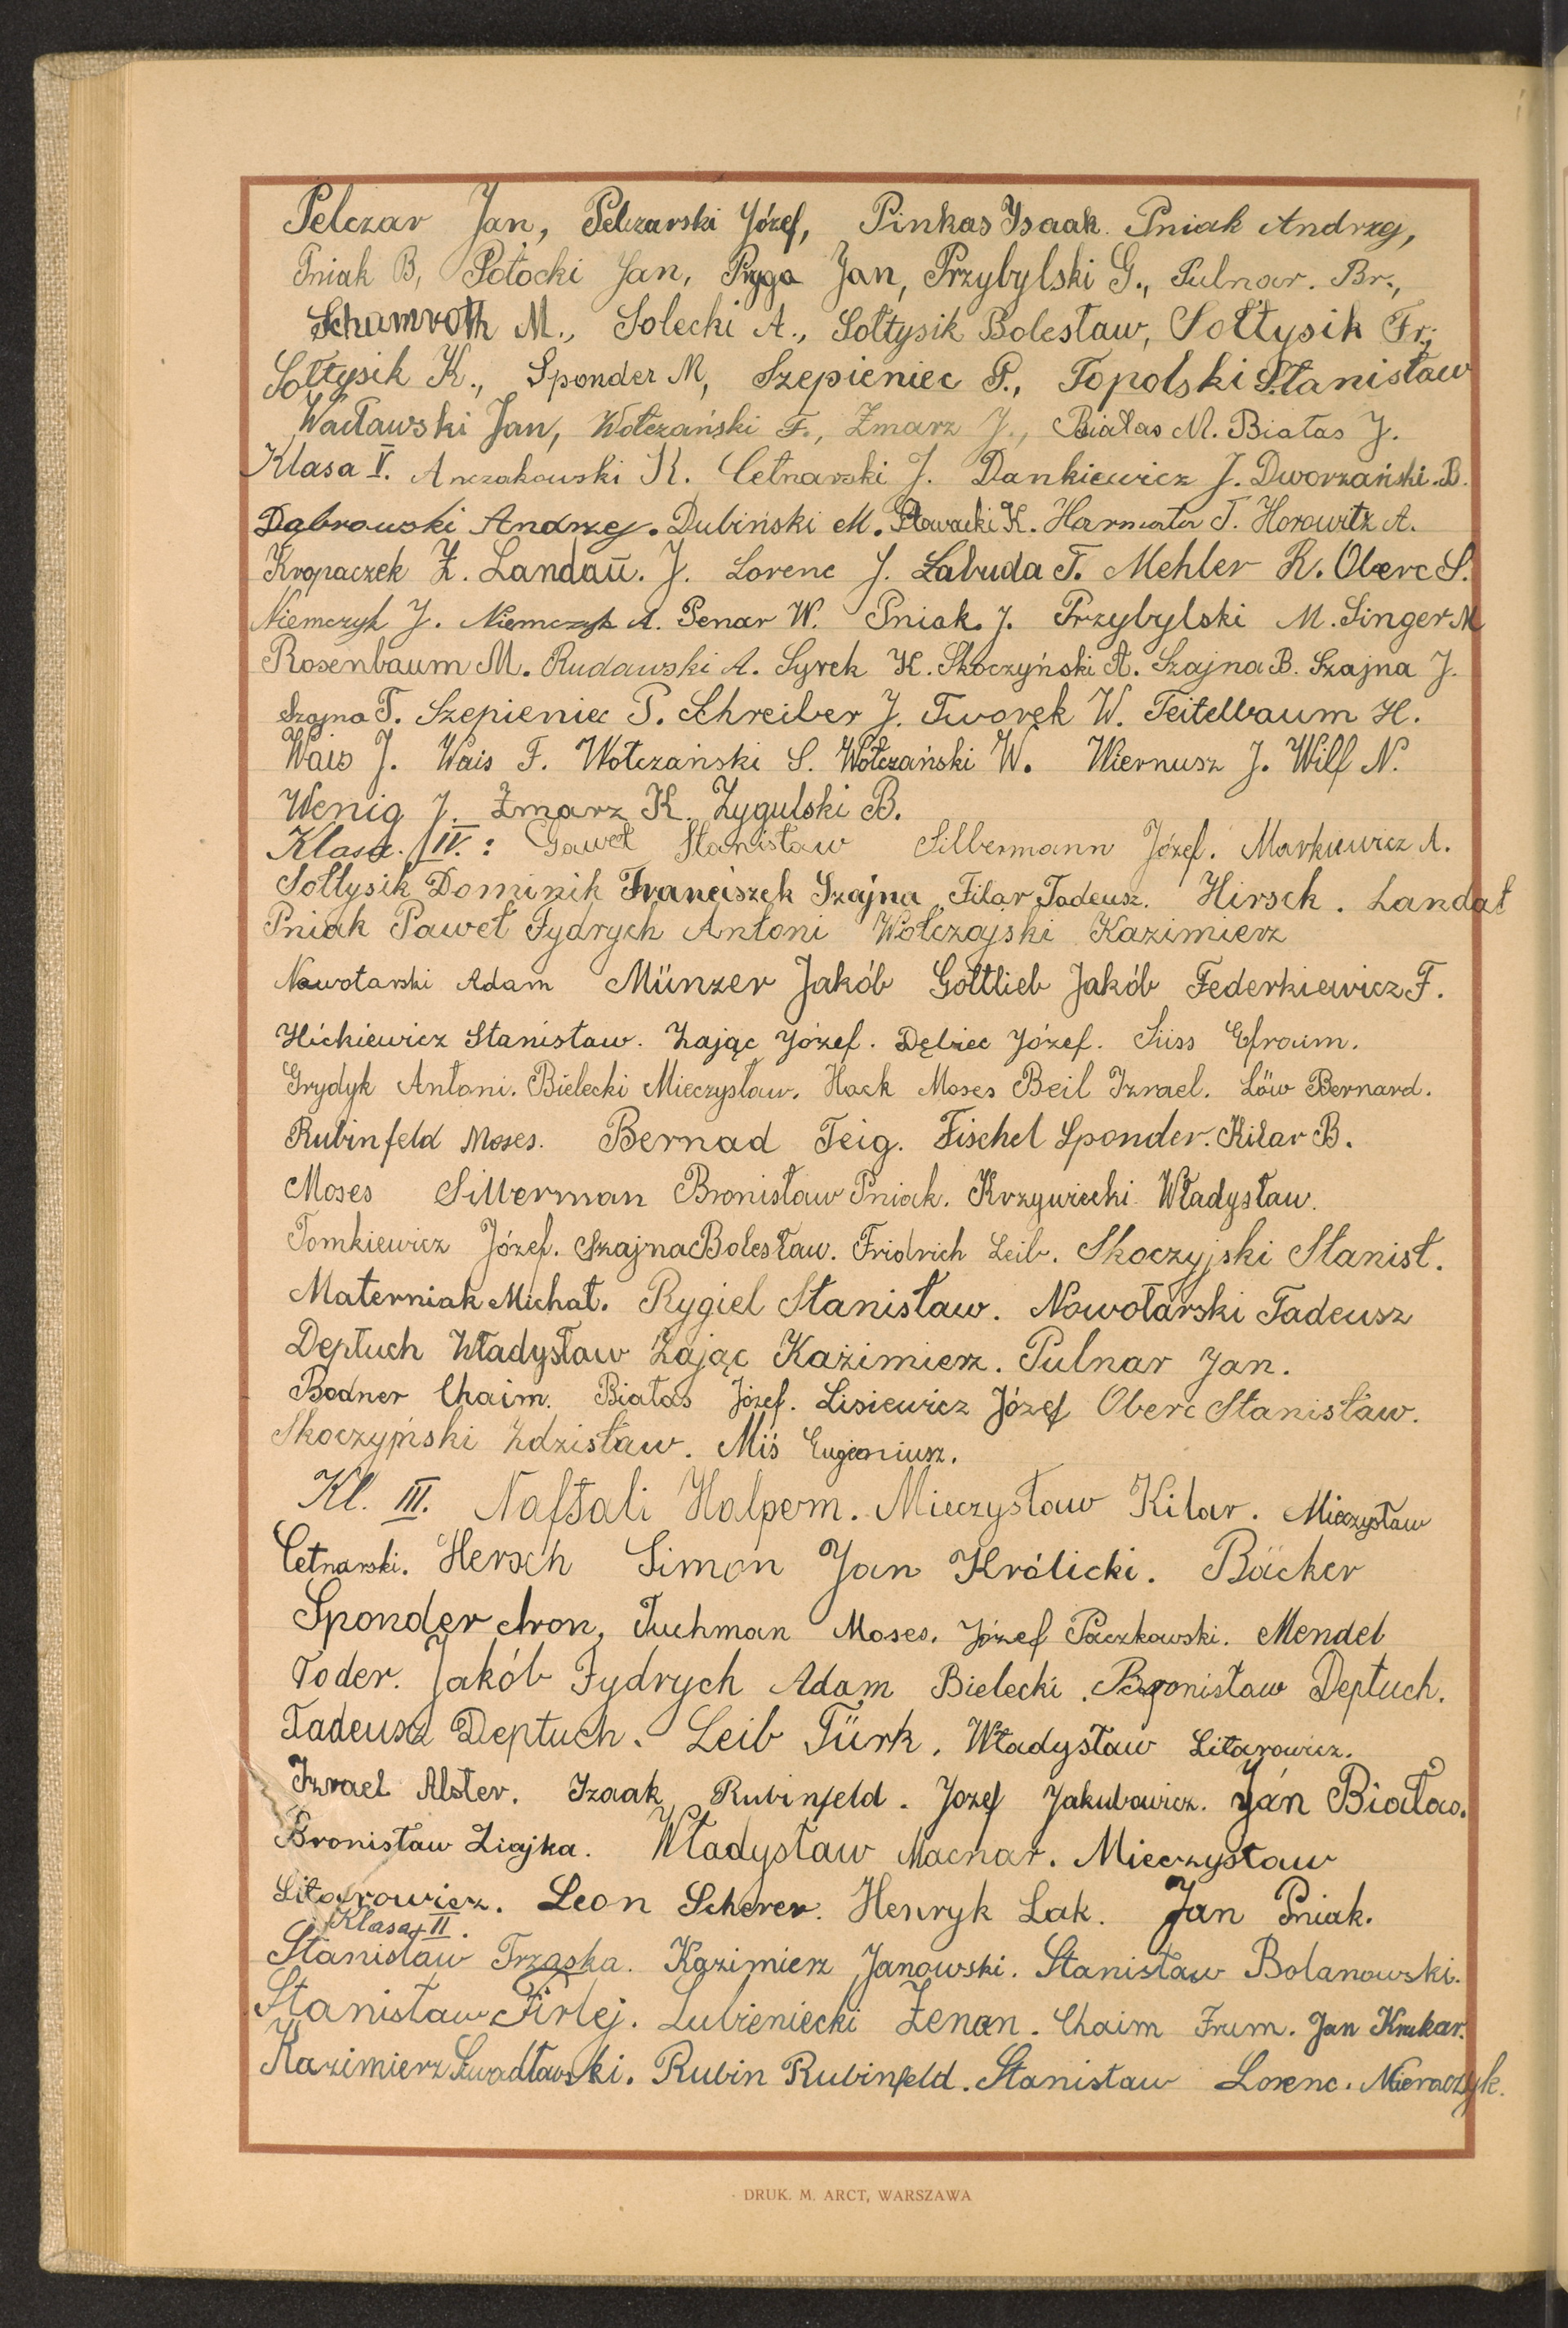 Pelczar Jan, Pelczarski Józef, Pinkas Ysaak. Pniak Andrzej,
Pniak B, Potocki Jan, Pryga Jan, Przybylski G., Pulnar. Br.,
Schamroth M., Solecki A., Sołtysik Bolesław, Sołtysik Fr.,
Sołtysik K., Sponder M, Szepieniec P., Topolski Stanisław
Wacławski Jan, Wołczański F., Zmarz J., Białas M. Białas J.
Klasa V. Anczakowski K. Cetnarski J. Dankiewicz J. Dworzański. B.
Dąbrowski Andrzej. Dubiński M. Głowacki K. Harmata T. Horowitz A.
Kropaczek Z. Landau. J. Lorenc J. Łabuda T. Mehler R. Oberc S.
Niemczyk J. Niemczyk A. Penar W. Pniak. J. Przybylski M. Singer M
Rosenbaum M. Rudawski A. Syrek K. Skoczyński A. Szajna B. Szajna J.
Szajna T. Szepieniec P. Schreiber J. Tworek W. Teitelbaum H.
Wais J. Wais F. Wołczański S. Wołczański W. Wiernusz J. Wilf N.
Wenig J. Zmarz K. Zygulski B.
Klasa. IV. : Gaweł Stanisław Silbermann Józef. Markiewicz A.
Sołtysik Dominik Franciszek Szajna Filar Tadeusz. Hirsch. Landał
Pniak Paweł Fydrych Antoni Wołczajski Kazimierz
Nawotarski Adam Münzer Jakób Gottlieb Jakób Federkiewicz F.
Hickiewicz Stanisław. Zając Józef. Dębiec Józef. Süss Efroim.
Grydyk Antoni. Bielecki Mieczysław. Hack Moses Beil Izrael. Löw Bernard.
Rubinfeld Moses. Bernad Feig. Fischel Sponder. Kilar B.
Moses Silberman Bronisław Pniak. Krzywiecki Władysław.
Tomkiewicz Józef. Szajna Bolesław. Fridrich Leib. Skoczyjski Stanisł.
Materniak Michał. Rygiel Stanisław. Nowotarski Tadeusz
Deptuch Władysław Zając Kazimierz. Pulnar Jan.
Bodner Chaim. Białas Józef. Lisiewicz Józef Oberc Stanisław.
Skoczyński Zdzisław. Miś Eugeniusz.
Kl. III. Naftali Halpern. Mieczysław Kilar. Mieczysław
Cetnarski. Hersch Simon Jan Królicki. Bäcker
Sponder Aron, Tuchman Moses. Józef Paczkowski. Mendel
Toder. Jakób Fydrych Adam Bielecki. Bronisław Deptuch.
Tadeusz Deptuch. Leib Türk. Władysław Litarowicz.
Izrael Alster. Izaak Rubinfeld. Jozef Jakubowicz. Ján Białas.
Bronisław Ziajka. Władysław Macnar. Mieczysław
Litarowicz. Leon Scherer. Henryk Lak. Jan Pniak.
Klasa II.
Stanisław Trzaska. Kazimierz Janowski. Stanisław Bolanowski.
Stanisław Firlej. Lubieniecki Zenon. Chaim Frum. Jan Krukar.
Kazimierz Swadławski. Rubin Rubinfeld. Stanisław Lorenc. Niemczyk.
DRUK. M. ARCT, WARSZAWA